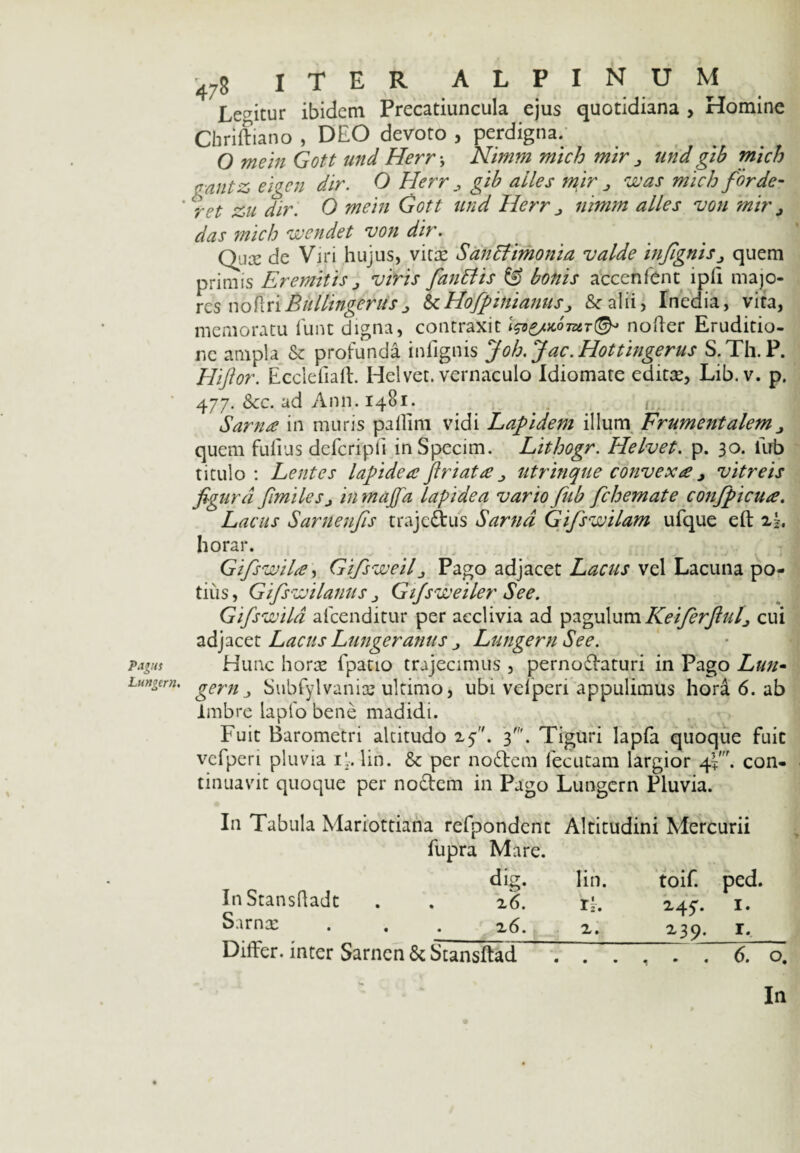 478 ITER ALPINUM
Legitur ibidem Precatiuncula ejus quotidiana , Homine
Chriſtiano , DEO devoto , perdigna.
O mein Gott und Herr; Nimm mich mir, und gib mich
gantz eigen dir. O Herr, gib alles mir, was mich förde-
ret zu dir. O mein Gott und Herr, nimm alles von mir,
das mich wendet von dir.
Quæ de Viri hujus, vitæ Sanctimonia valde inſignis, quem
primis Eremitis, viris ſanctis & bonis accenſent ipſi majo-
res noſtri Bullingerus, & Hoſpinianus, & alii, Inedia, vita,
memoratu ſunt digna, contraxit noſter Eruditio-
ne ampla & profundâ inſignis Joh. Jac. Hottingerus S. Th. P.
Hiſtor. Eccleſiaſt. Helvet. vernaculo Idiomate editæ, Lib. v. p.
477. &c. ad Ann. 1481.
Sarnæ in muris paſſim vidi Lapidem illum Frumentalem,
quem fuſius deſcripſi in Specim. Lithogr. Helvet. p. 30. ſub
titulo : Lentes lapideæ ſtriatæ, utrinque convexæ, vitreis
figurâ ſimiles, in maſſa lapidea vario ſub ſchemate conſpicuæ.
Lacus Sarnenſis trajectus Sarnâ Giſswilam uſque eſt 2½.
horar.
Giſswilæ, Giſsweil, Pago adjacet Lacus vel Lacuna po-
tiùs, Giſswilanus, Giſsweiler See.
Giſswilâ aſcenditur per acclivia ad pagulum Keiſerſtul, cui
adjacet Lacus Lungeranus, Lungern See.
Pagus Lungern.
Hunc horæ ſpatio trajecimus , pernoctaturi in Pago Lun-
gern, Subſylvaniæ ultimo, ubi veſperi appulimus horâ 6. ab
Imbre lapſo bene madidi.
Fuit Barometri altitudo 25". 3'". Tiguri lapſa quoque fuit
veſperi pluvia 1½. lin. & per noctem ſecutam largior 4½'". con-
tinuavit quoque per noctem in Pago Lungern Pluvia.
In Tabula Mariottiana reſpondent Altitudini Mercurii
ſupra Mare.
dig. lin. toiſ. ped.
In Stansſtadt . . 26. 1½. 245. 1.
Sarnæ . . . 26. 2. 239. 1.
Differ. inter Sarnen & Stansſtad . . . . . . 6. 0.
In